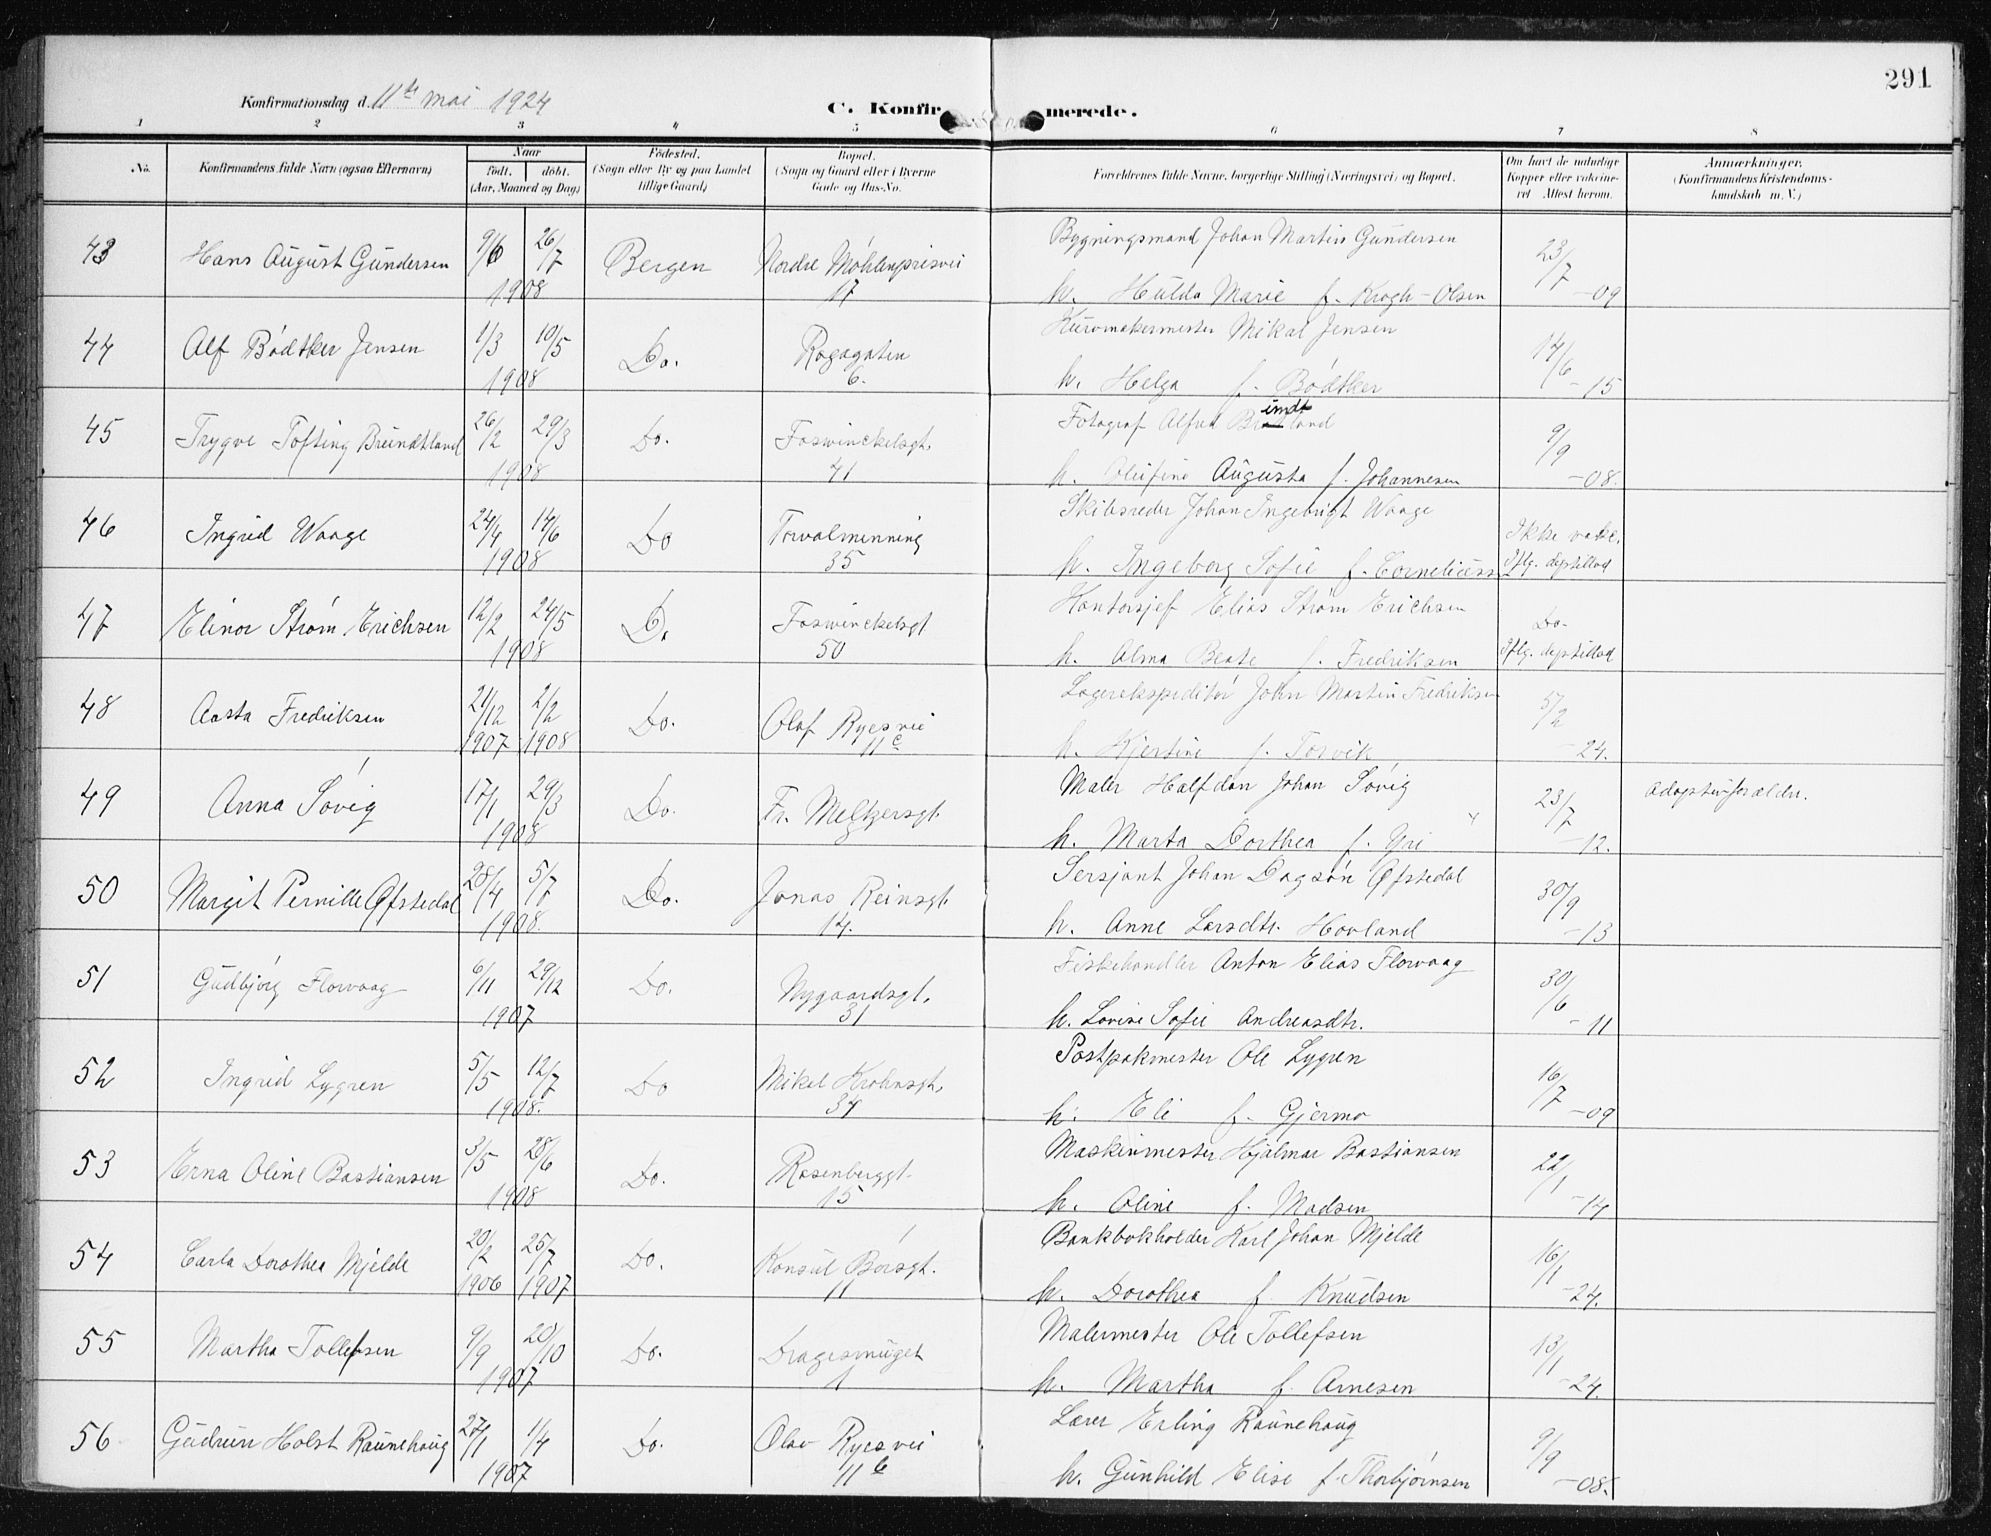 291
Konfirmationsdag d. 11te mai 1924
C. Konfirmerede.
1 2 3 4 5 6 7 8
No. Konfirmandens fulde Navn (ogsaa Efternavn) Naar født. døbt. (Aar, Maaned og Dag) Fødested. (Sogn eller By og paa Landet tillige Gaard) Bopæl. (Sogn og Gaard eller i Byerne Gade og Hus-No. Forældrenes fulde Navne, borgerlige Stilling (Næringsvei) og Bopæl. Om havt de naturlige Kopper eller vaccineret Attest herom. Anmærkninger. (Konfirmandens Kristendomskundskab m. V.)
43 Hans August Gundersen 9/6 26/7 Bergen Nordre Möhlenprisvei Bygningsmand Johan Martin Gundersen 23/7
1908 17 h. Hulda Marie f. Krogh-Olsen -09
44 Alf Bödtker Jensen 1/3 10/5 Do. Rogagaten Kurvmakermester Mikal Jensen 14/6
1908 6. h. Helga f. Bödtker -15
45 Trygve Tofting Brundtland 26/2 29/3 Do. Foswinckelsgt. Fotograf Alfred Brundtland 9/9
1908 41 h. Olufine Augusta f. Johannesen -08.
46 Ingrid Waage 24/4 14/6 Do Torvalmenning Skibsreder Johan Ingebrigt Waage Ikke vakc.
1908 35 h. Ingeborg Sofie f. Corneliuss Iflg. deptillad
47 Elinor Strøm Erichsen 12/2 24/5 Do Foswinckelsgt Kontorsjef Elias Strøm Erichsen Do-
1908 50 h. Alma Beate f. Fredriksen Iflg. deptillad
48 Aasta Fredriksen 21/12 2/2 Do. Olaf Ryesvei Lagerekspeditör John Martin Fredriksen 5/2
1907 1908 11c h. Kjerstine f. Torvik -24.
49 Anna Sövig 17/1 29/3 Do. Fr. Meltzersgt. Maler Halfdan Johan Sövig 23/7 Adoptivforældr.
1908 h. Marta Dorthea f. Yri -12.
50 Margit Pernille Øfstedal 28/4 5/7 Do. Jonas Reinsgt. Sersjant Johan Dagsøn Øfstedal 30/9
1908. 14. h. Anne Larsdtr. Hovland -13
51 Gudbjörg Florvaag 6/11 29/12 Do. Nygaardsgt. Fiskehandler Anton Elias Florvaag 30/6
1907 31 h. Lovise Sofie Andreasdtr. -11
52 Ingrid Lygren 5/5 12/7 Do Mikal Krohnsgt. Postpakmester Ole Lygren 16/7
1908. 34 h. Eli f. Gjermo -09
53 Erna Oline Bastiansen 3/5 28/6 Do. Rosenberggt. Maskinmester Hjalmar Bastiansen 22/1
1908 15 h. Oline f. Madsen -14
54 Carla Dorothea Mjelde 20/2 25/7 Do. Konsul Börsgt. Bankbokholder Karl Johan Mjelde 16/1
1906 1907 11 h. Dorothea f. Knudsen -24.
55 Martha Tollefsen 9/9 20/10 Do. Dragesmuget Malermester Ole Tollefsen 13/1
1907 1 h. Martha f. Arnesen -24.
56 Gudrun Holst Raunehaug 27/1 1/4 Do. Olav Ryesvei Lærer Erling Raunehaug 9/9
1907 11b h. Gunhild Elise f. Thorbjørnsen -08.